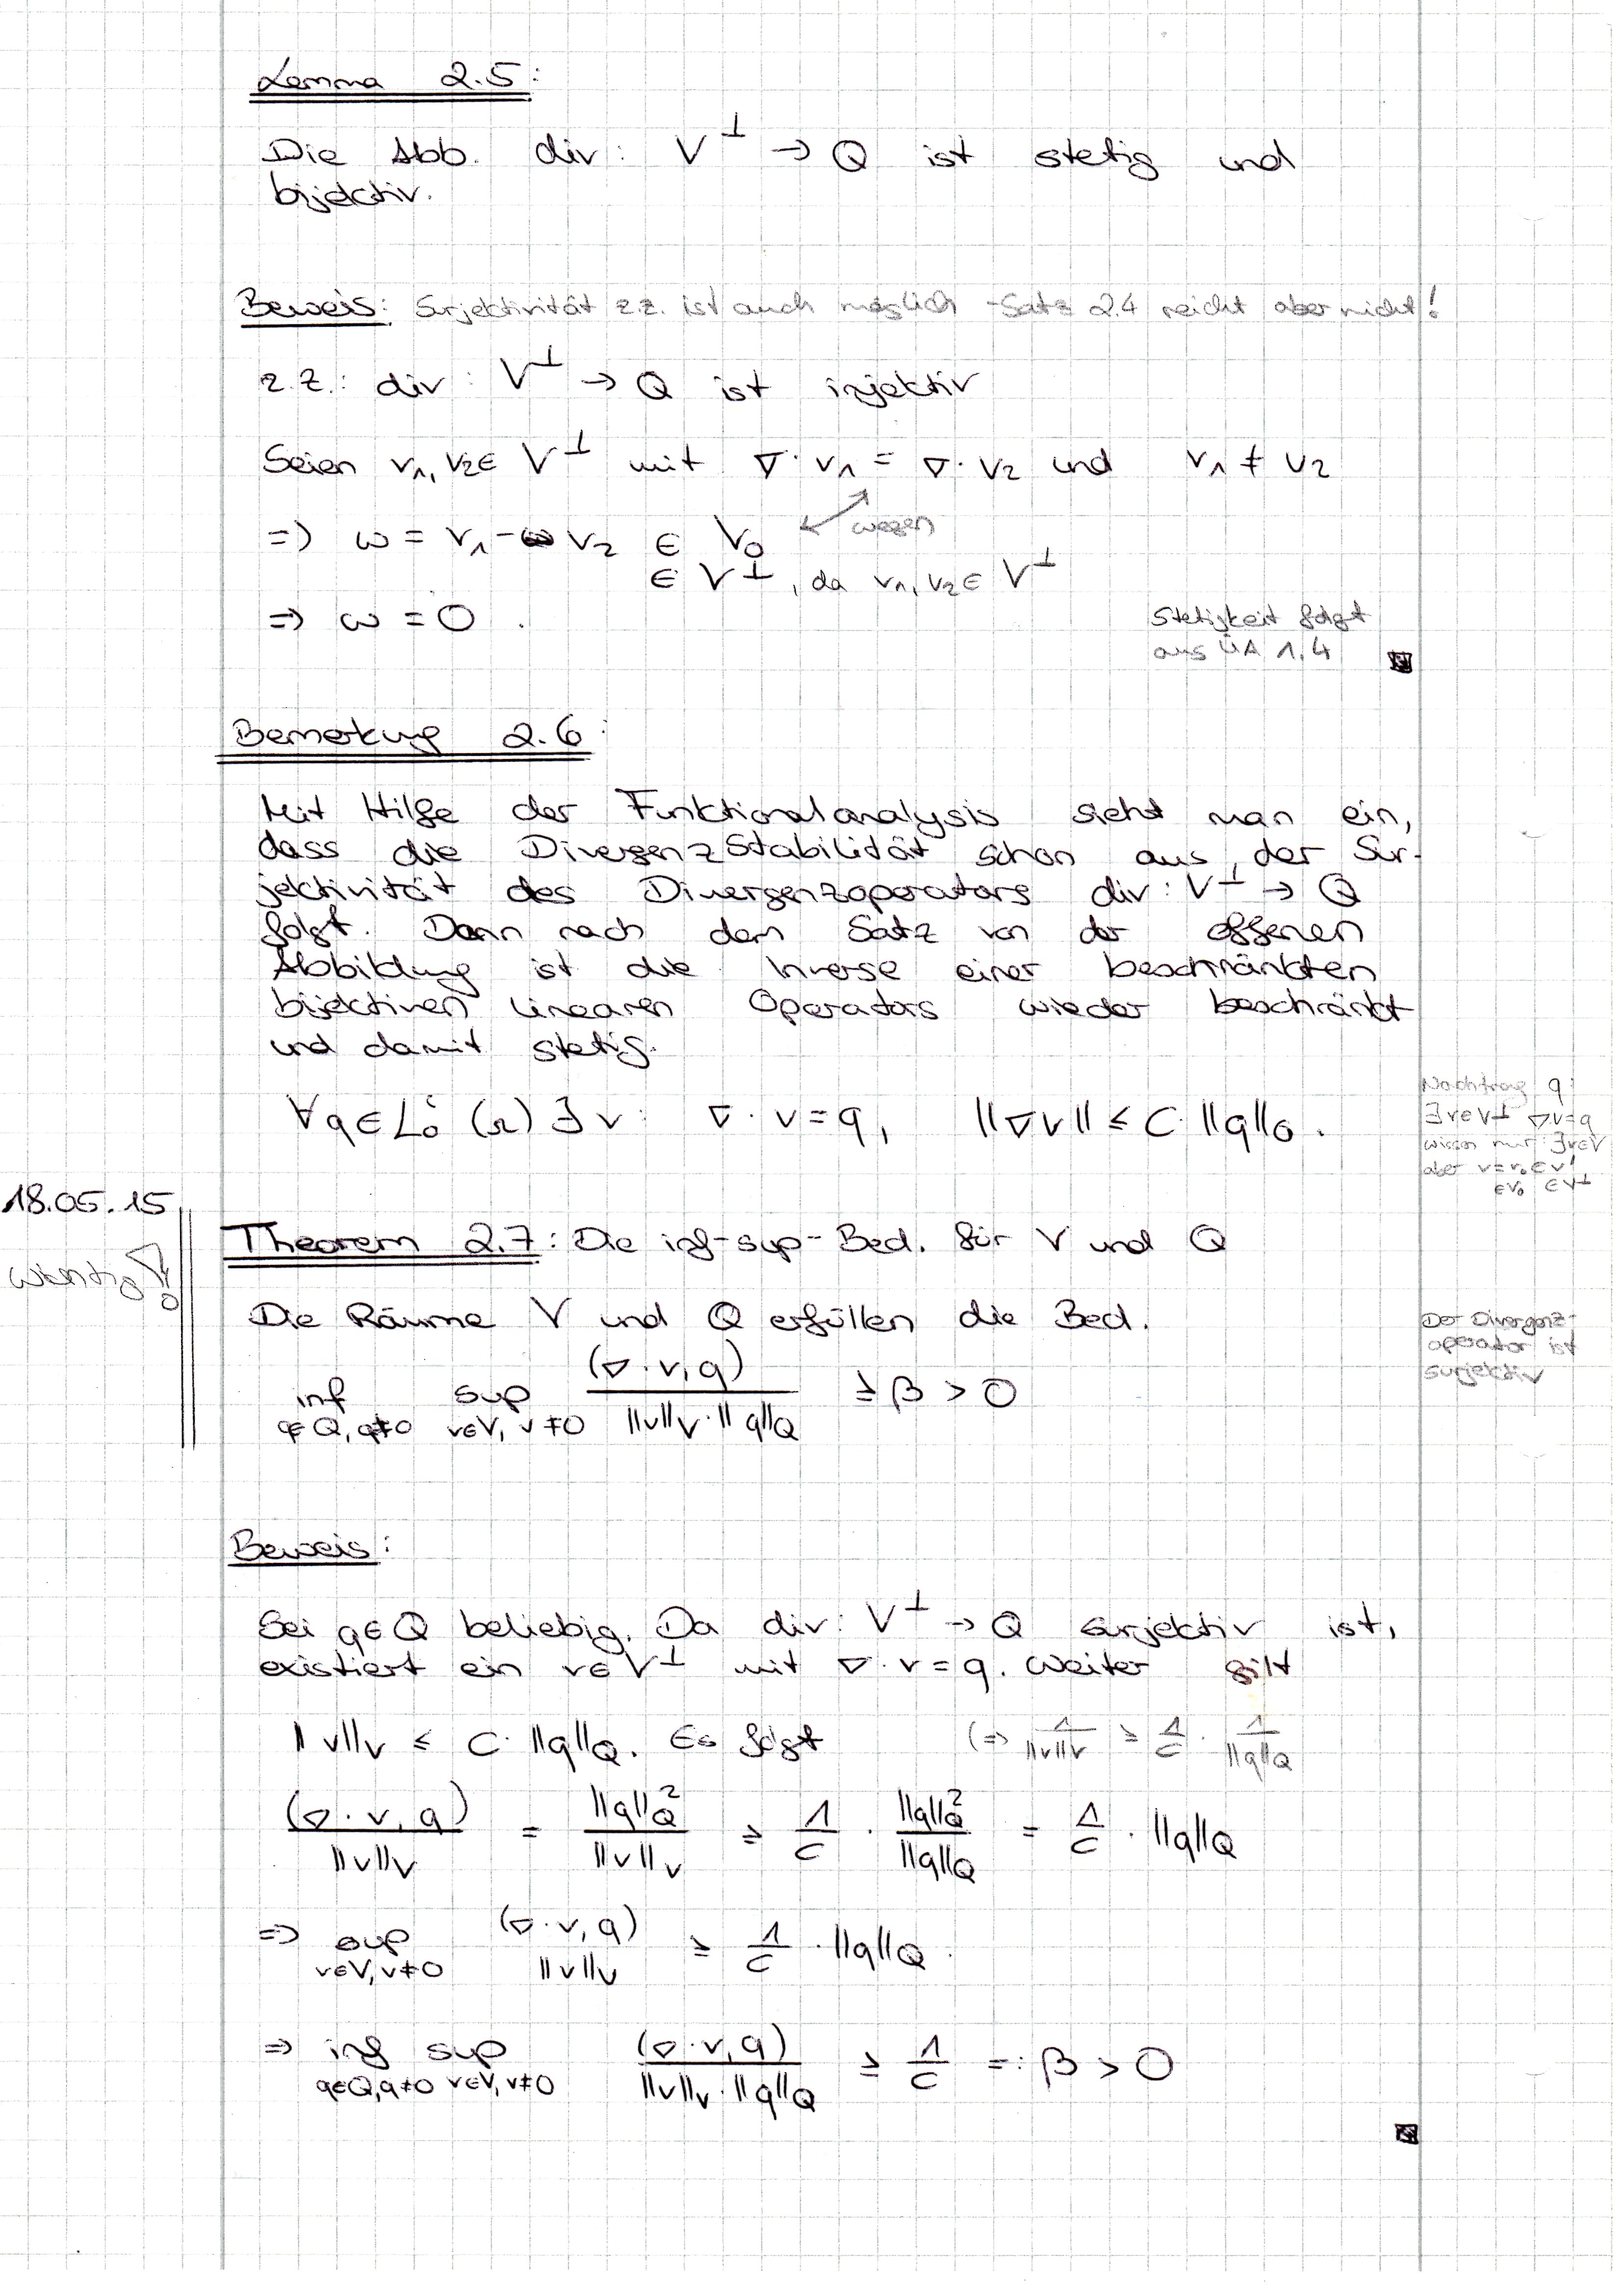 Lemma 2.5:
Die Abb. div: V^⊥ → Q ist stetig und
bijektiv.
Beweis: Surjektivität z.z. ist auch möglich - Satz 2.4 reicht aber nicht!
z.Z.: div: V^⊥ → Q ist injektiv
Seien v₁, v₂ ∈ V^⊥ mit ∇·v₁ = ∇·v₂ und v₁ ≠ v₂
wegen
=> ω = v₁ - v₂ ∈ V₀
∈ V^⊥, da v₁, v₂ ∈ V^⊥
=> ω = 0.
Stetigkeit folgt
aus ÜA 1,4
Bemerkung 2.6:
Mit Hilfe der Funktionalanalysis sieht man ein,
dass die Divergenzstabilität schon aus der Sur-
jektivität des Divergenzoperators div: V^⊥ → Q
folgt. Denn nach dem Satz von der offenen
Abbildung ist die Inverse einer beschränkten
bijektiven linearen Operators wieder beschränkt
und damit stetig.
∀ q ∈ L₀² (Ω) ∃ v: ∇·v = q, ||∇v|| ≤ C·||q||₀.
Nachtrag q:
∃ v ∈ V^⊥ ∇·v = q
wissen nur: ∃ v ∈ V
aber v = v₀ v^⊥
∈ V₀ ∈ V^⊥
18.05.15
Wichtig!
Theorem 2.7: Die inf-sup-Bed. für V und Q
Die Räume V und Q erfüllen die Bed.
inf_{q∈Q, q≠0} sup_{v∈V, v≠0} (∇·v, q) / (||v||_V · ||q||_Q) ≥ β > 0
Der Divergenz-
operator ist
surjektiv
Beweis:
Sei q ∈ Q beliebig. Da div: V^⊥ → Q surjektiv ist,
existiert ein v ∈ V^⊥ mit ∇·v = q. Weiter gilt
||v||_V ≤ C·||q||_Q. Es folgt (=> 1/||v||_V ≥ 1/C · 1/||q||_Q
(∇·v, q)/||v||_V = ||q||²_Q/||v||_V ≥ 1/C · ||q||²_Q/||q||_Q = 1/C · ||q||_Q
=> sup_{v∈V, v≠0} (∇·v, q) / ||v||_V ≥ 1/C · ||q||_Q.
=> inf_{q∈Q, q≠0} sup_{v∈V, v≠0} (∇·v, q) / (||v||_V · ||q||_Q) ≥ 1/C =: β > 0